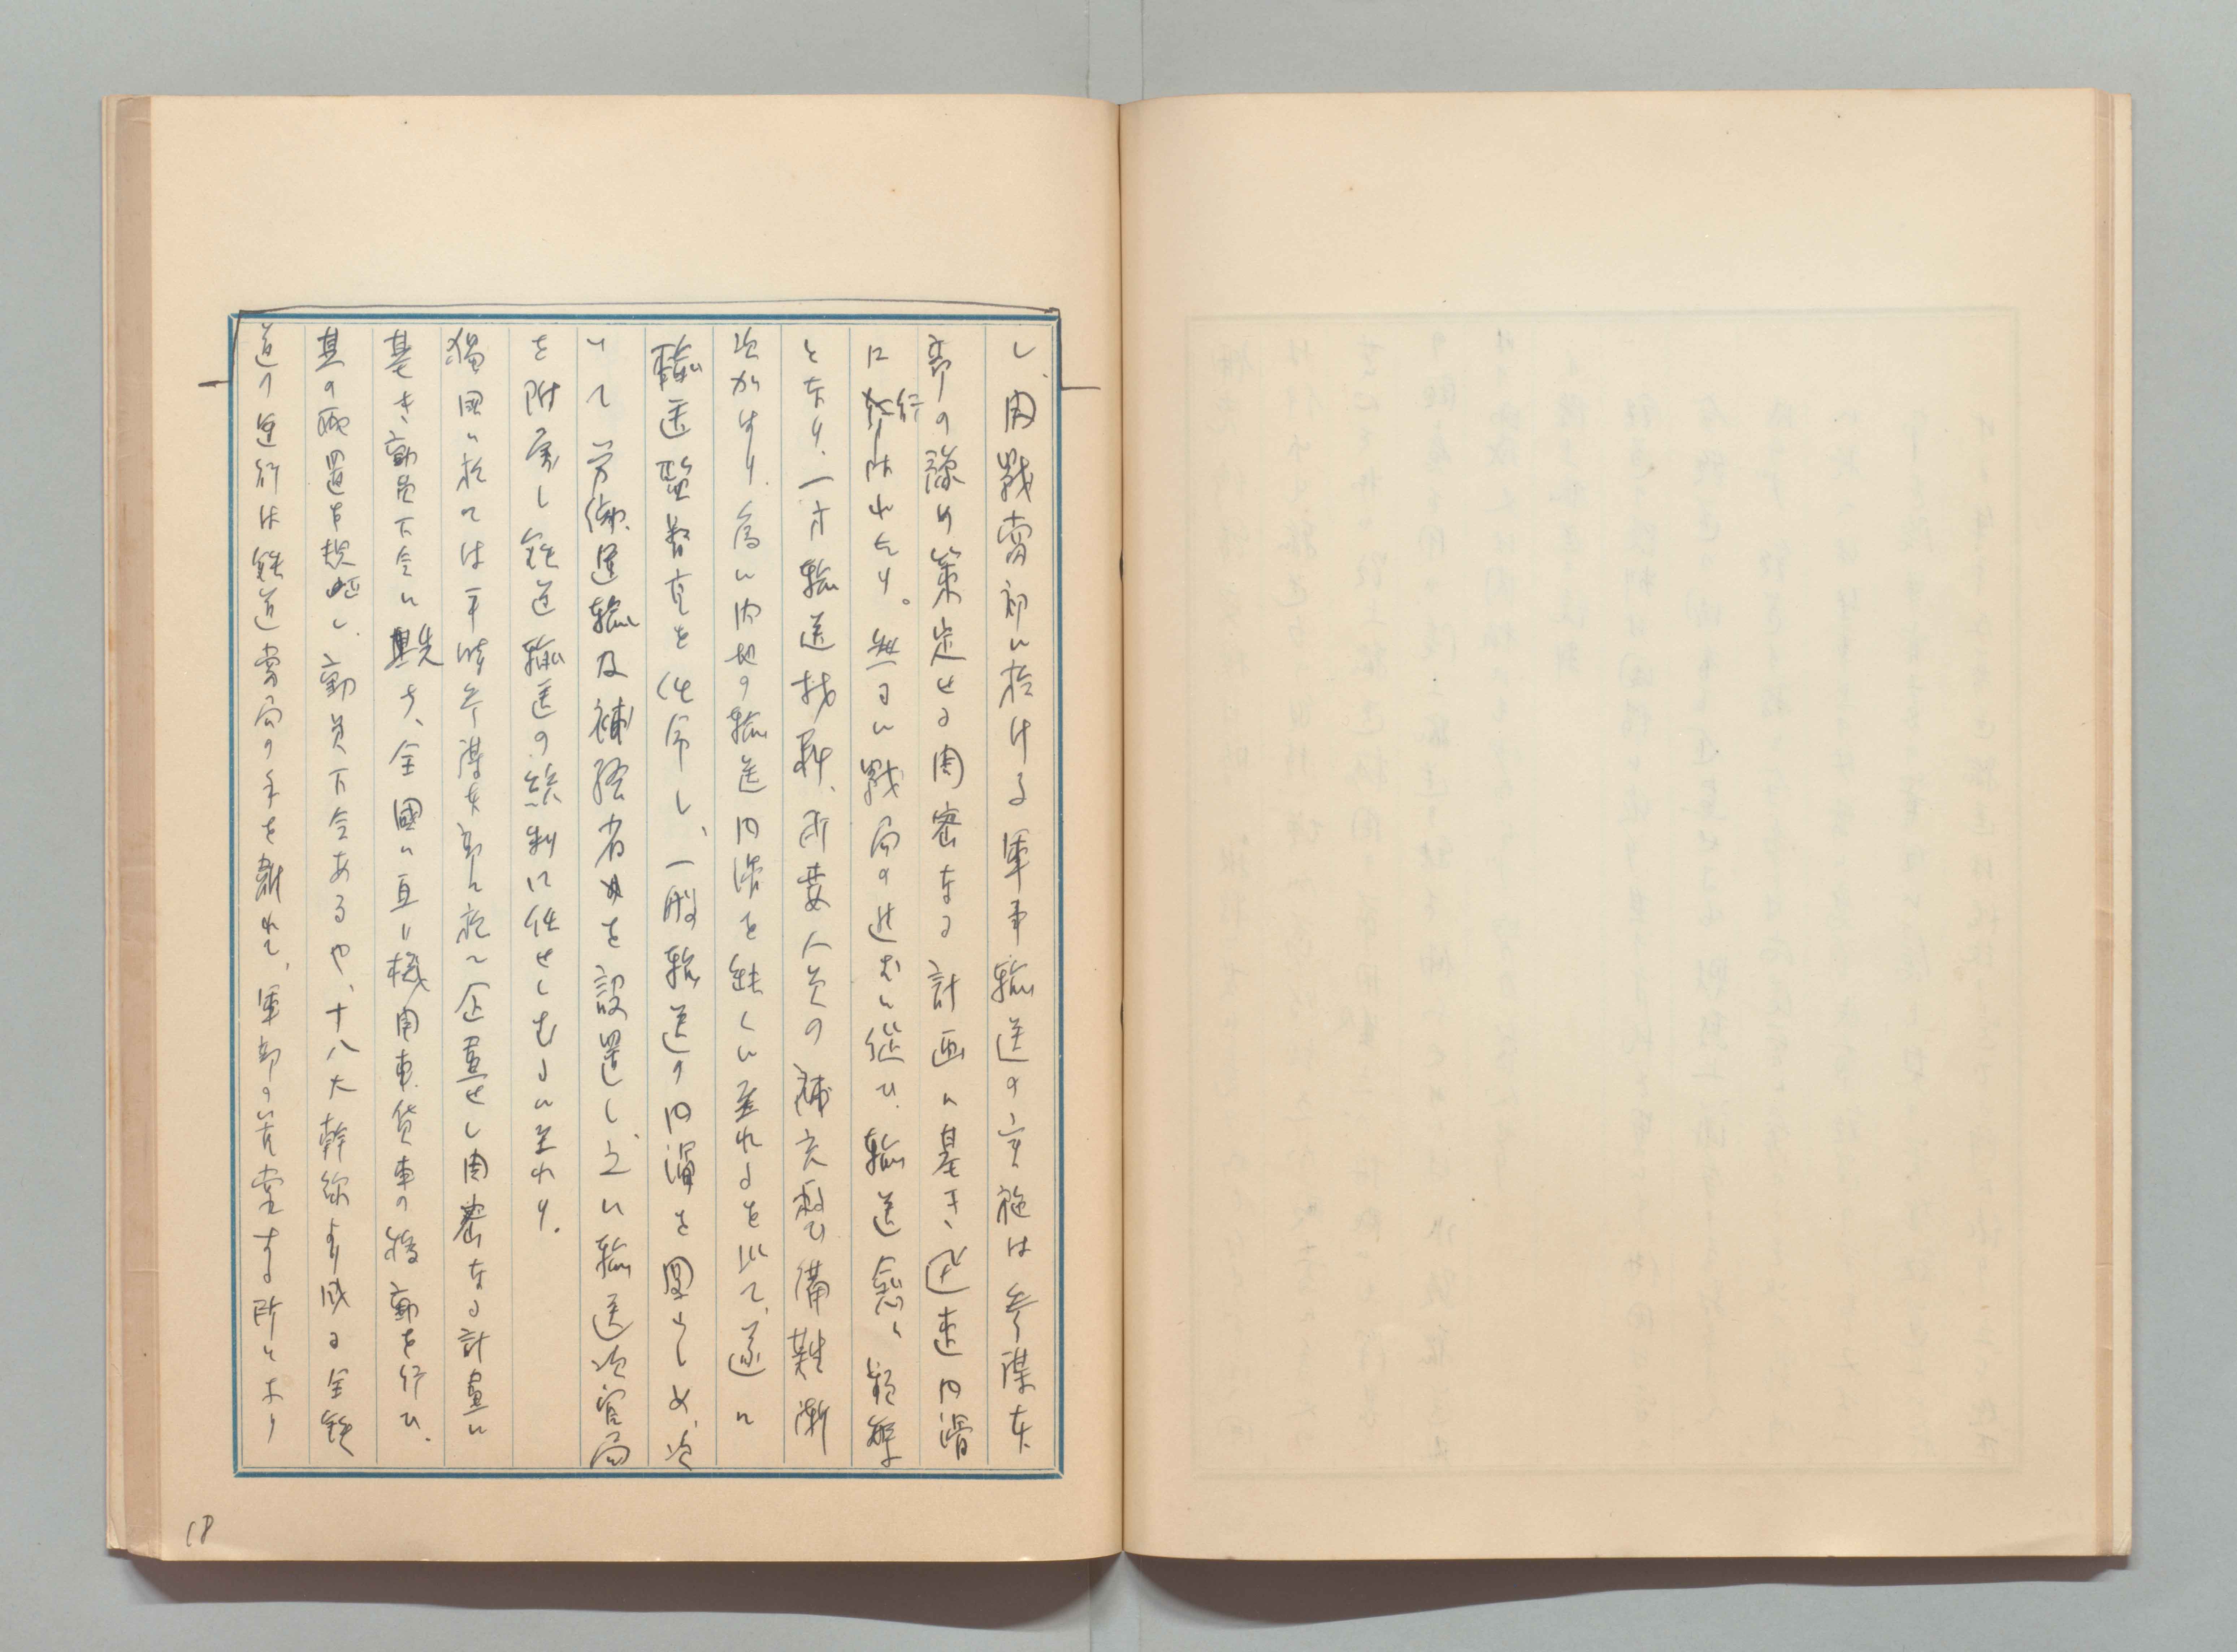 し、開戰當初に於ける軍事輸送の實施は參謀本
部の豫め策定せる周密なる計画に基き、迅速円滑
に行はれたり。然るに戰局の進むに從ひ、輸送愈々頻繁
となり、一方輸送材料、所要人員の補充整備難漸
次加はり、為に内地の輸送円滑を缺くに至れるを以て、遂に
輸送監督官を任命し、一般輸送の円滑を圖らしめ、次
いて労働、運輸及補給省を設置し、之に輸送次官局
を附屬し鉄道輸送の統制に任せしむるに至れり。
獨國に於ては平時參謀本部に於て企畫せし周密なる計畫に
基き、動員下令に先ち、全國に亘り機関車、貨車の移動を行ひ、
其の配置を規正し、動員下令あるや、十八大幹線より成る全鉄
道の運行は鉄道當局の手を離れて、軍部の管掌する所となり
18